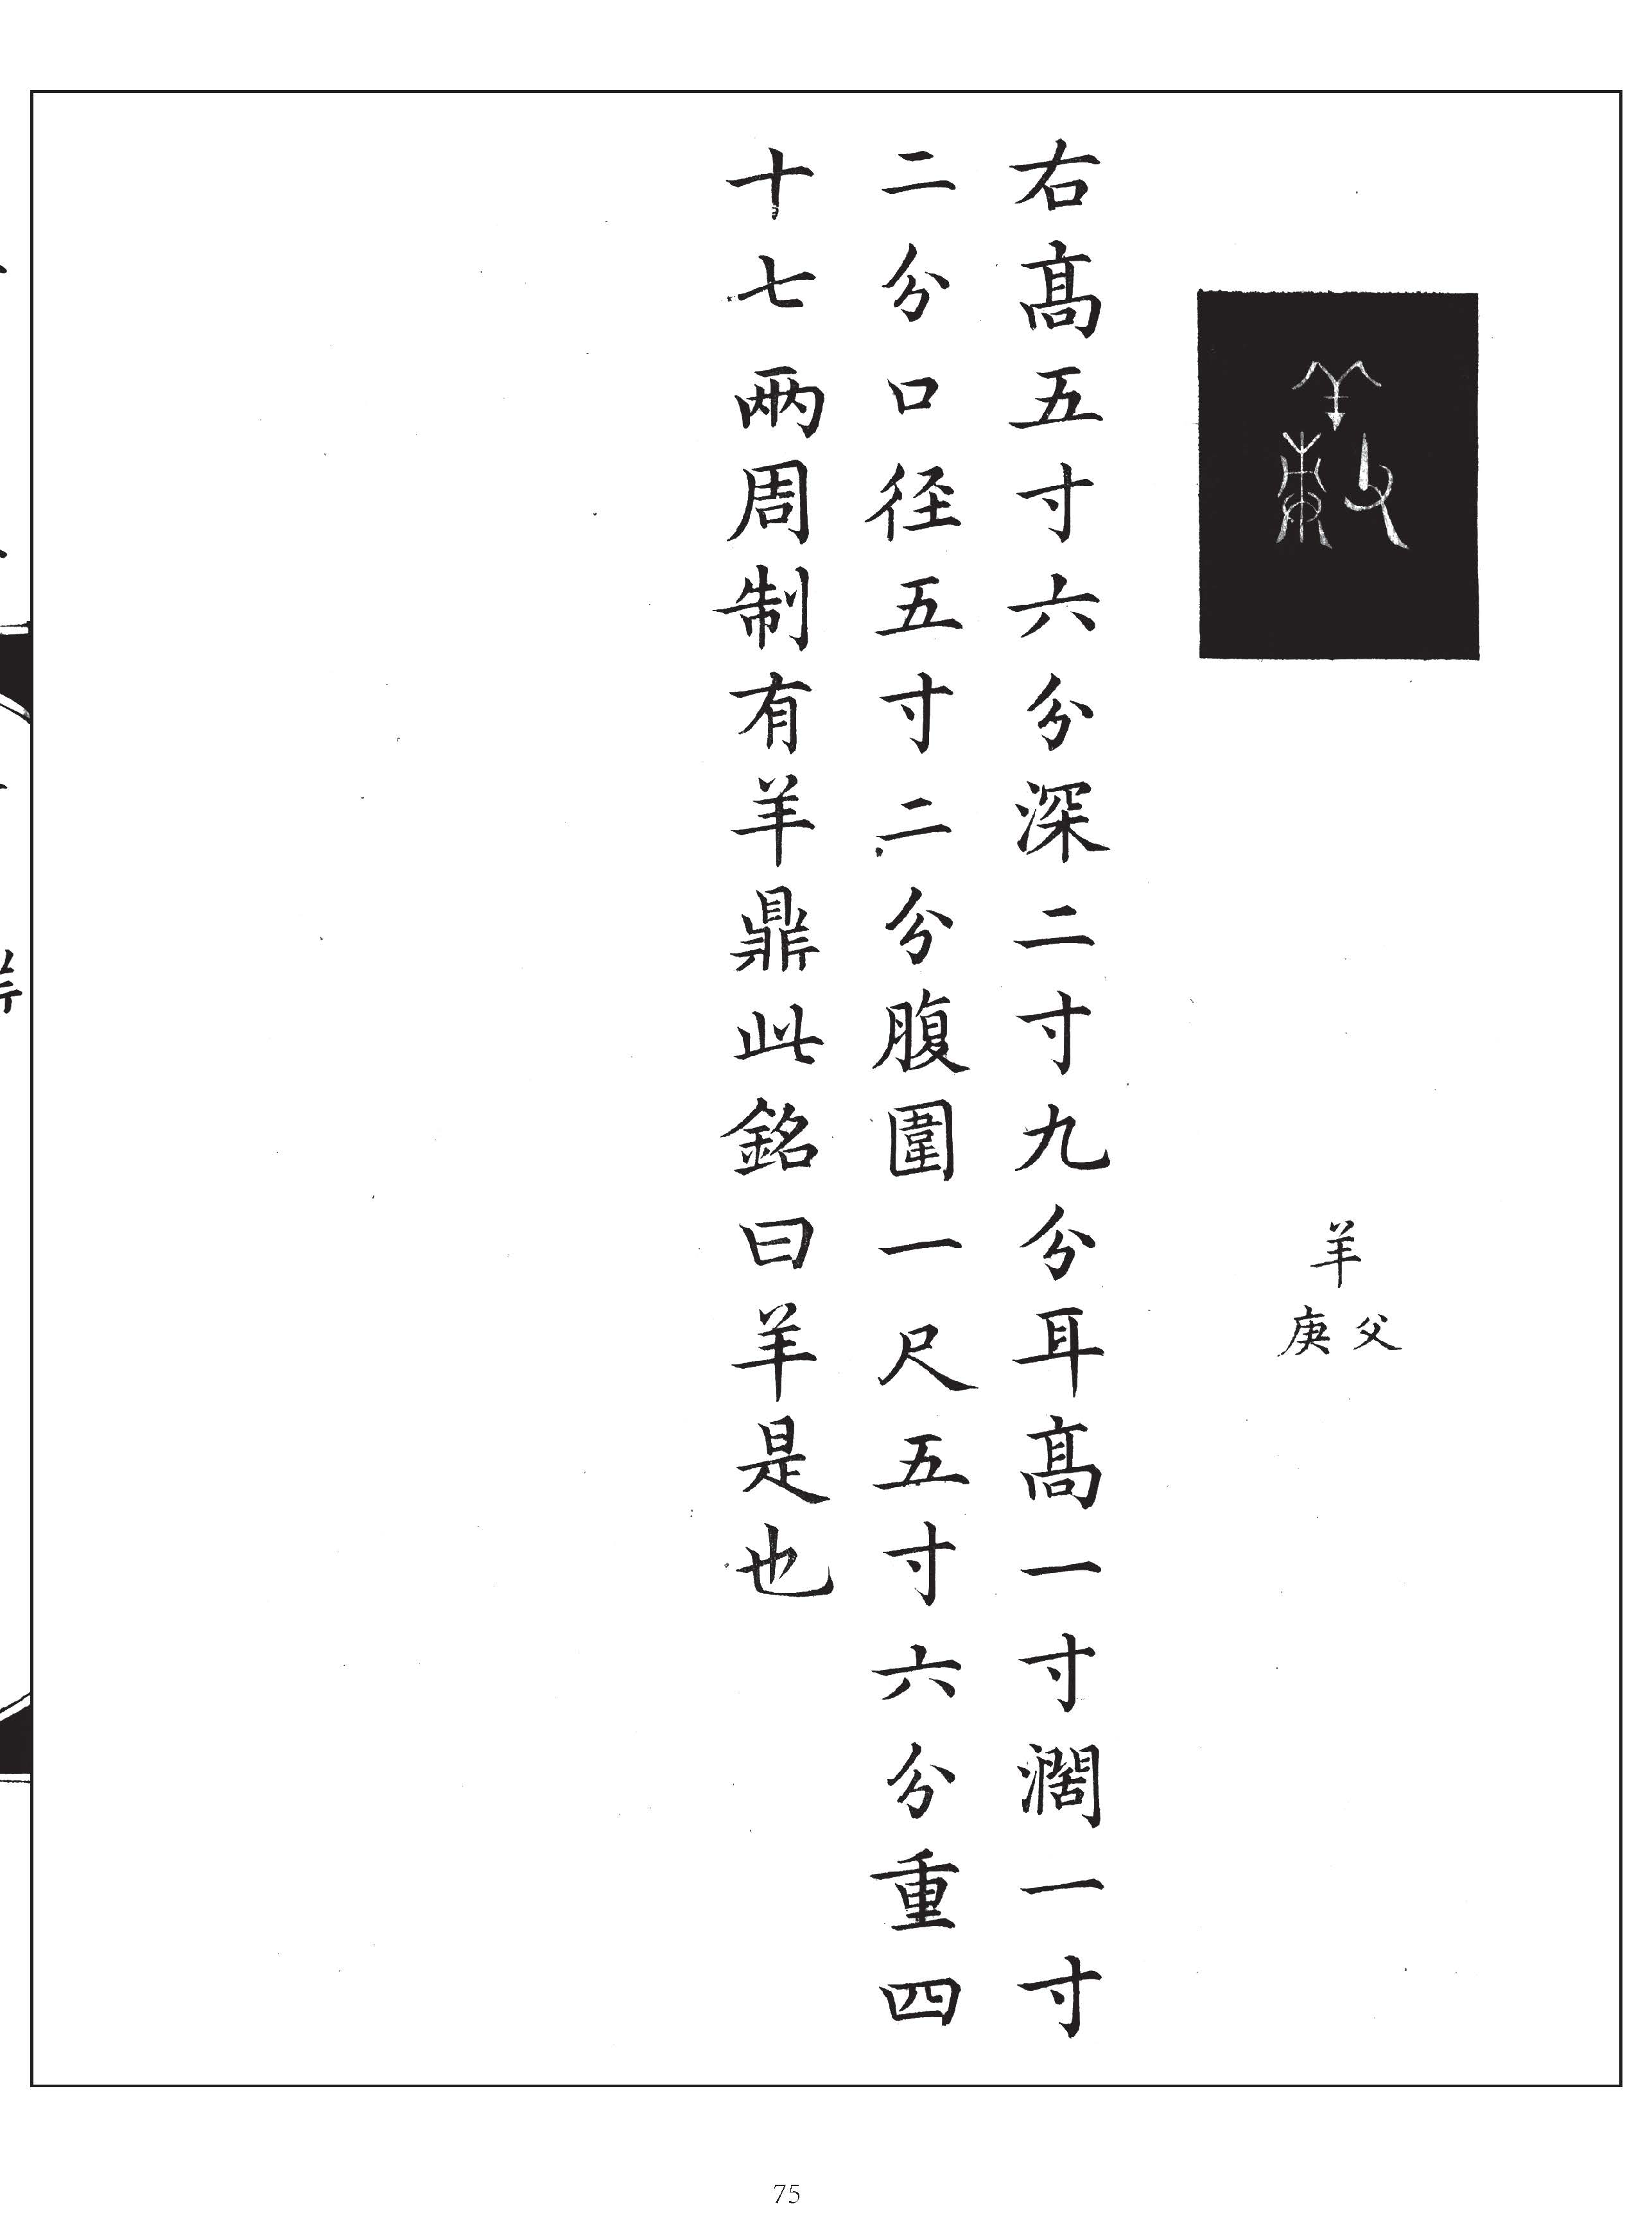 羊
父
庚
右髙五寸六分深二寸九分耳髙一寸濶一寸
二分口径五寸二分腹圍一尺五寸六分重四
十七兩周制有羊鼎此銘曰羊是也
75